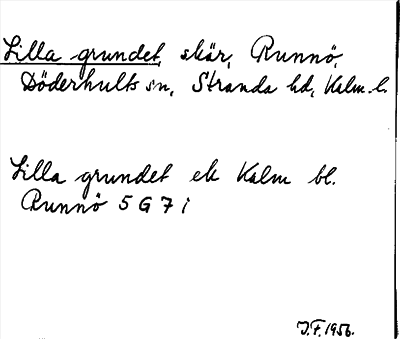 Lilla grundet, skär, Runnö,
Döderhults sn, Stranda hd, Kalm. l.
Lilla grundet ek Kalm bl.
Runnö 5 G 7 i
J.F. 1956.